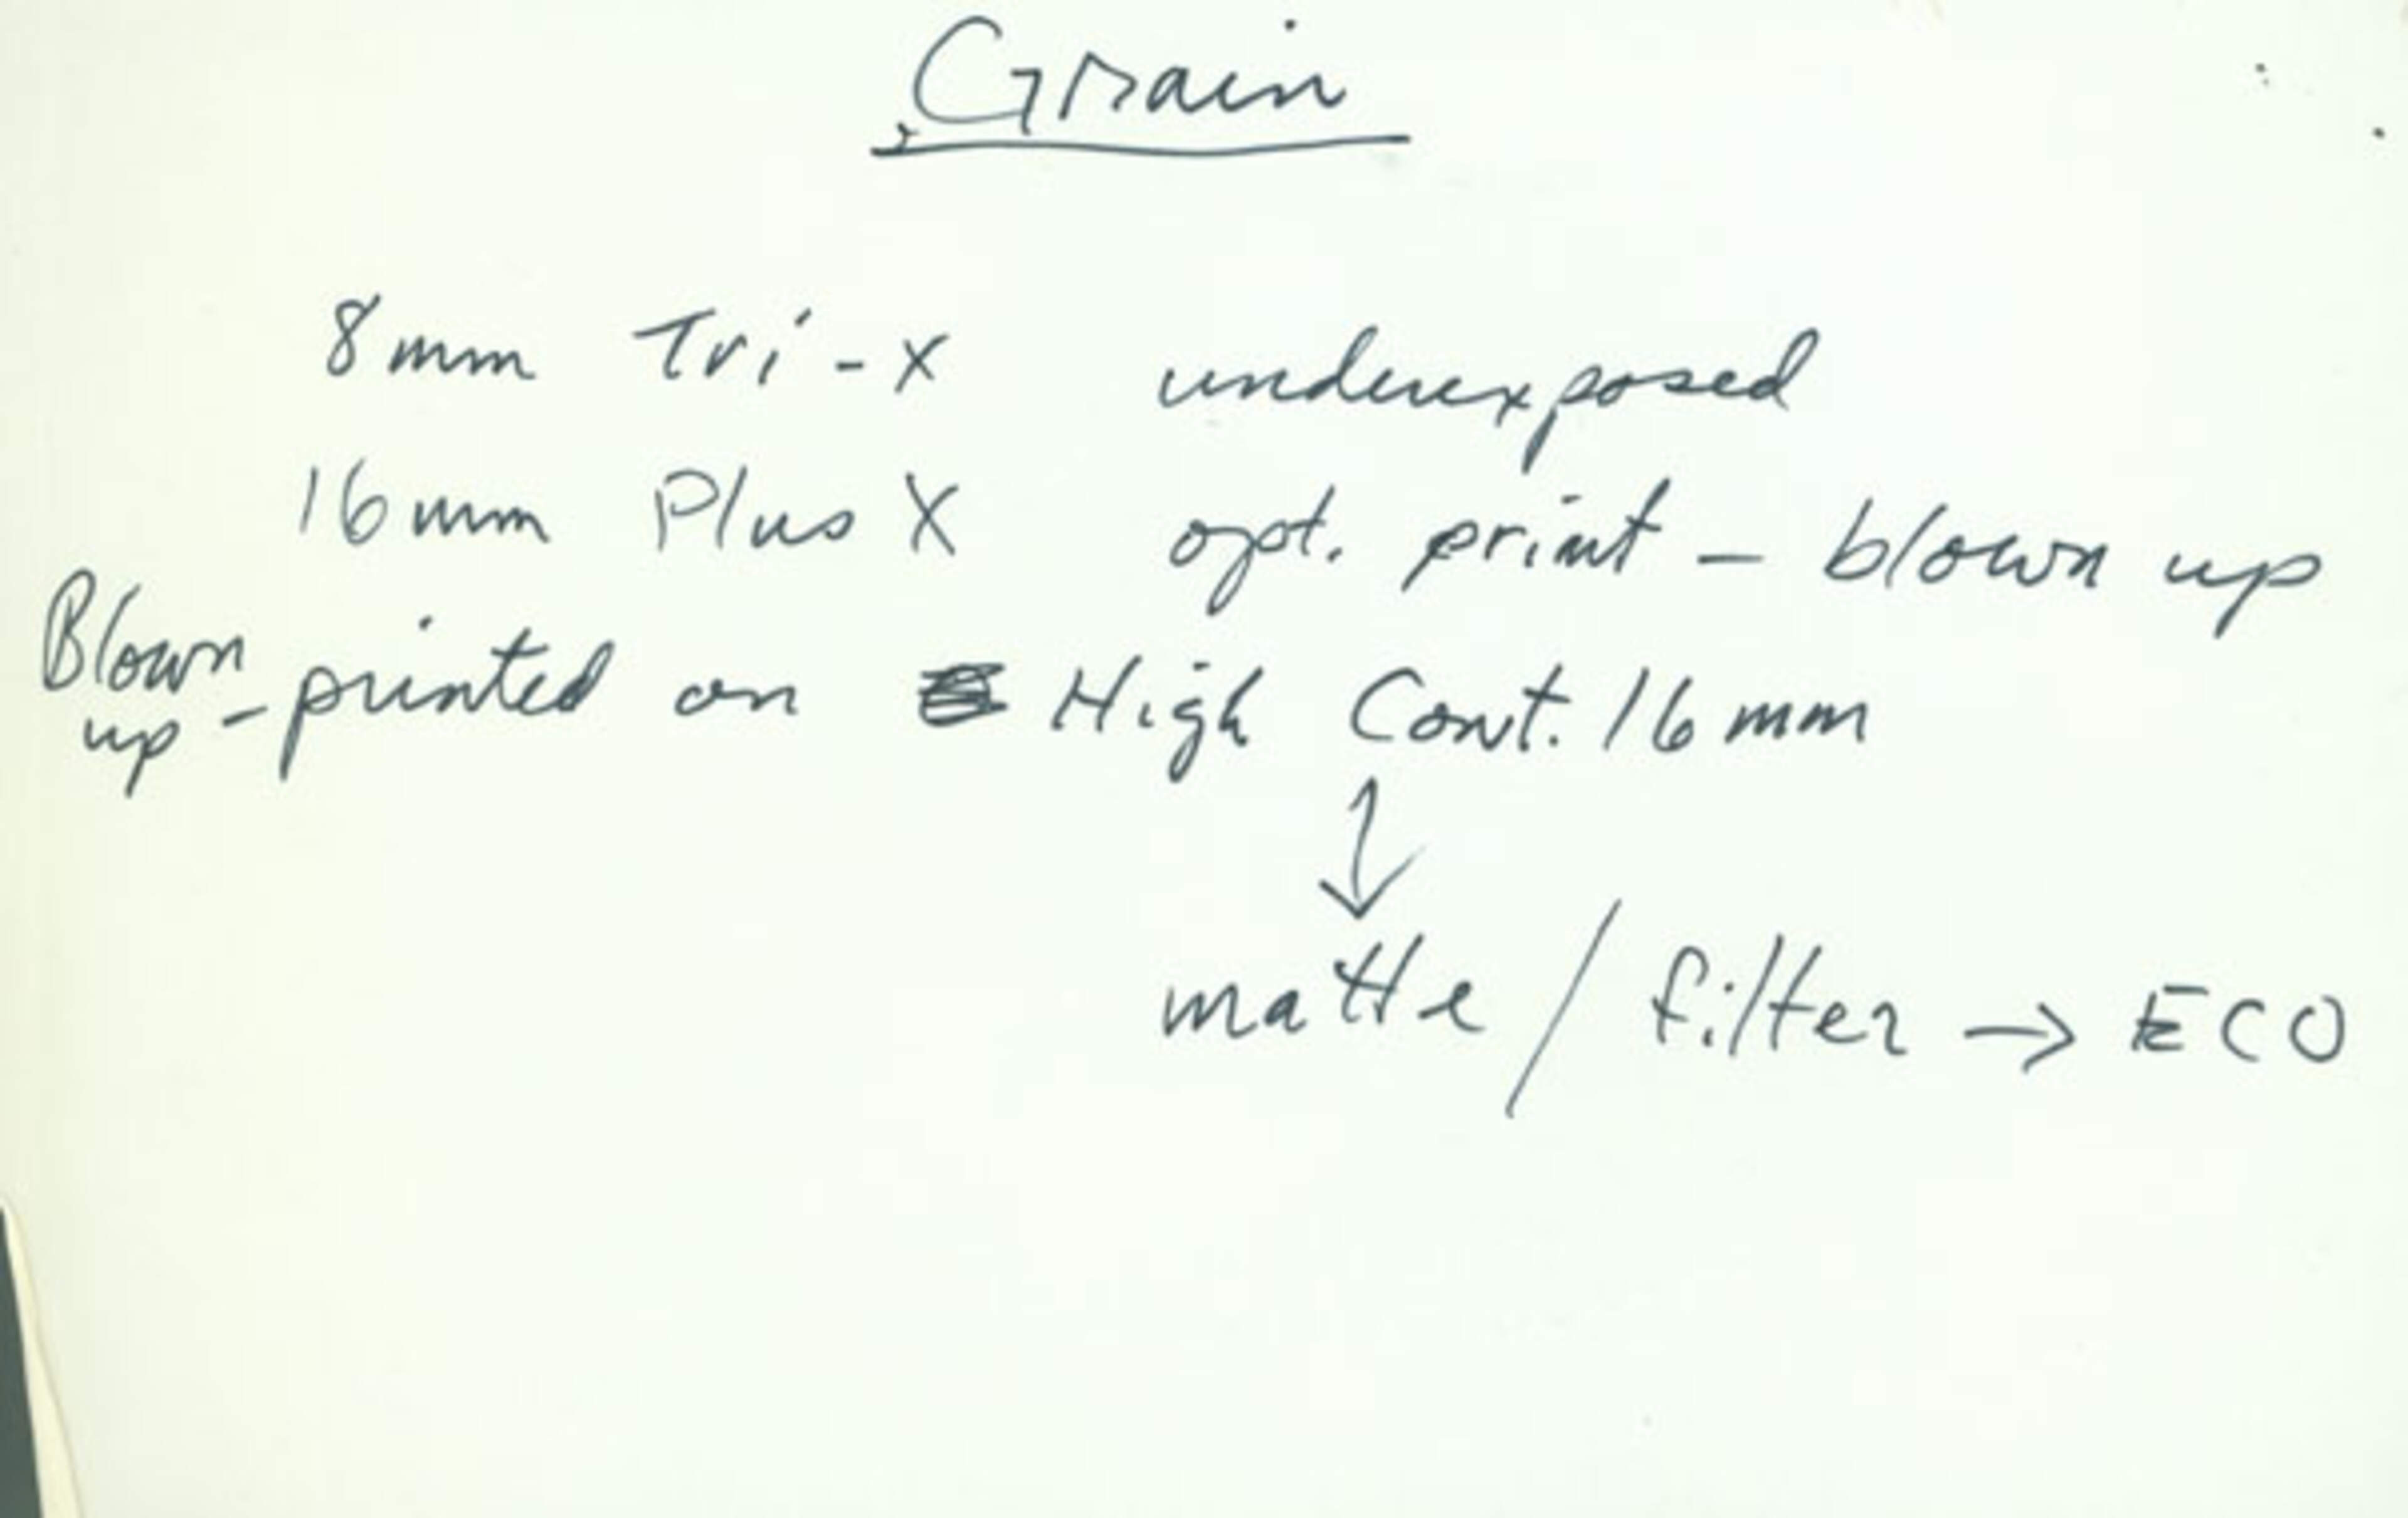 Grain
8mm Tri-X underexposed
16mm Plus X opt. print - blown up
Blown up - printed on High Cont. 16mm
↓
matte / filter → ECO